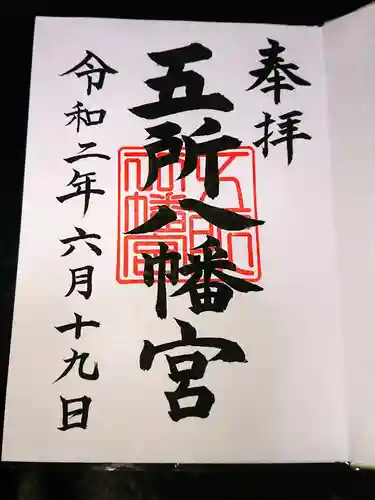 奉拝
五所八幡宮
令和二年六月十九日